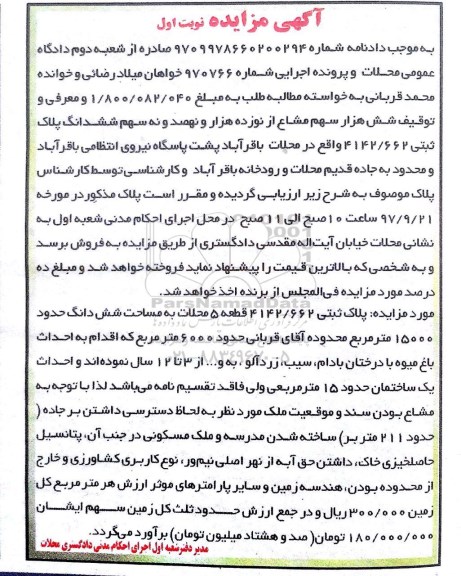 آگهی مزایده نوبت اول
به موجب دادنامه شماره ۹۷۰۹۹۷۸۶۶۰۲۰۰۲۹۴ صادره از شعبه دوم دادگاه
عمومی محلات و پرونده اجرایی شماره ۹۷۰۷۶۶ خواهان میلاد رضائی و خوانده
محمد قربانی به خواسته مطالبه طلب به مبلغ ۱/۸۰۰/۰۸۲/۰۴۰ و معرفی و
توقیف شش هزار سهم مشاع از نوزده هزار و نهصد و نه سهم ششدانگ پلاک
ثبتی ۴۱۴۲/۶۶۲ واقع در محلات باقرآباد پشت پاسگاه نیروی انتظامی باقرآباد
و محدود به جاده قدیم محلات و رودخانه باقر آباد و کارشناسی توسط کارشناس
پلاک موصوف به شرح زیر ارزیابی گردیده و مقرر است پلاک مذکور در مورخه
۹۷/۹/۲۱ ساعت ۱۰ صبح الی ۱۱ صبح در محل اجرای احکام مدنی شعبه اول به
نشانی محلات خیابان آیت‌اله مقدسی دادگستری از طریق مزایده به فروش برسد
و به شخصی که بالاترین قیمت را پیشنهاد نماید فروخته خواهد شد و مبلغ ده
درصد مورد مزایده فی‌المجلس از برنده اخذ خواهد شد.
ParsNamadData
مورد مزایده: پلاک ثبتی ۴۱۴۲/۶۶۲ قطعه ۵ محلات به مساحت شش دانگ حدود
۱۵۰۰۰ مترمربع محدوده آقای قربانی حدود ۶۰۰۰ متر مربع که اقدام به احداث
۰۲۱-۸۸۳۴۹۶۷۰-۵
باغ میوه با درختان بادام، سیب، زردآلو، به و... از ۳ تا ۱۲ سال نموده‌اند و احداث
یک ساختمان حدود ۱۵ مترمربعی ولی فاقد تقسیم نامه می‌باشد لذا با توجه به
مشاع بودن سند و موقعیت ملک مورد نظر به لحاظ دسترسی داشتن بر جاده (
حدود ۲۱۱ متر بر) ساخته شدن مدرسه و ملک مسکونی در جنب آن، پتانسیل
حاصلخیزی خاک، داشتن حق آبه از نهر اصلی نیم‌ور، نوع کاربری کشاورزی و خارج
از محدوده بودن، هندسه زمین و سایر پارامترهای موثر ارزش هر متر مربع کل
زمین ۳۰۰/۰۰۰ ریال و در جمع ارزش حدود ثلث کل زمین سهم ایشان
۱۸۰/۰۰۰/۰۰۰ تومان( صد و هشتاد میلیون تومان) برآورد می‌گردد.
مدیر دفتر شعبه اول اجرای احکام مدنی دادگستری محلات